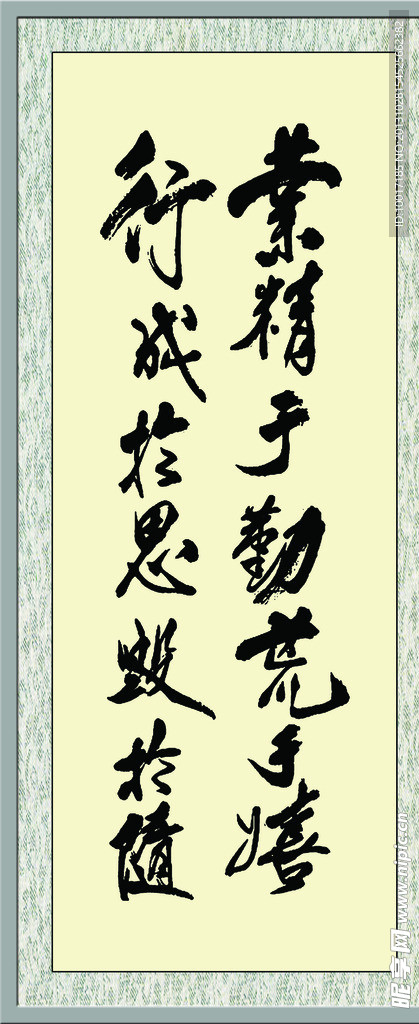 業精于勤荒于嬉
行成於思毀於隨
昵享网 www.nipic.cn
ID:10017185 NO:20141028154525662382